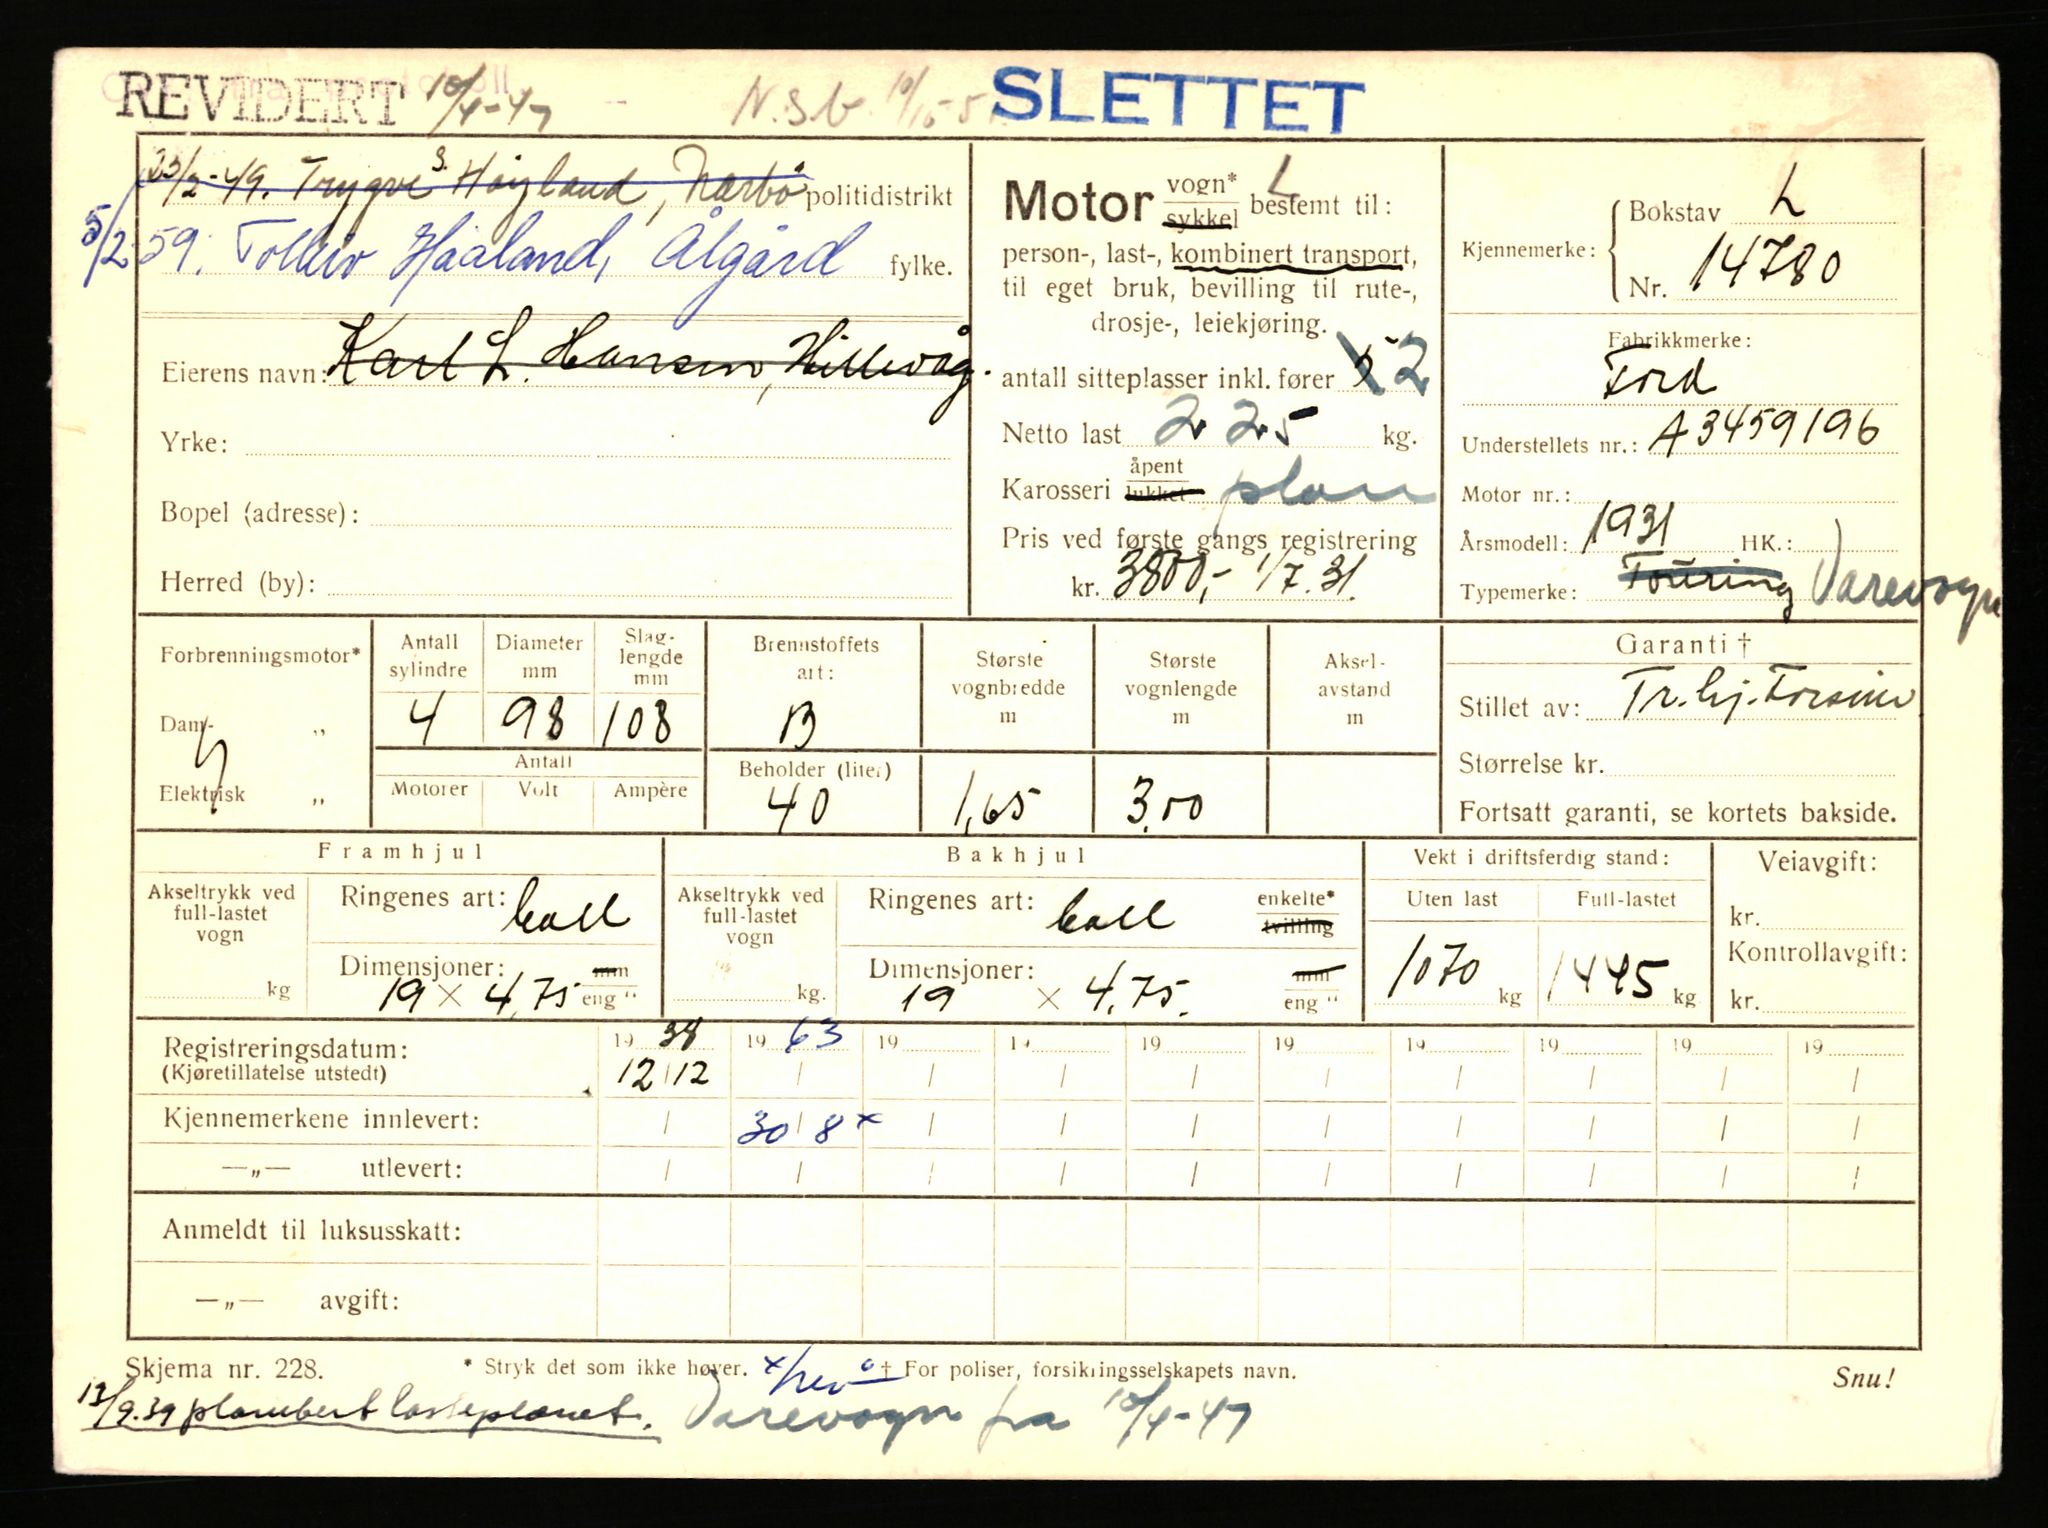 REVIDERT 10/4-47 N.S.b. SLETTET
23/2-49. Trygve S. Høyland, Nærbø politidistrikt
5/2 59. Tolleiv Haaland, Ålgård fylke.
Eierens navn: Karl L. Hansen, Hillevåg.
Yrke:
Bopel (adresse):
Herred (by):
Motor vogn* sykkel bestemt til: L
person-, last-, kombinert transport,
til eget bruk, bevilling til rute-,
drosje-, leiekjøring.
antall sitteplasser inkl. fører 5 2
Netto last 225 kg.
Karosseri åpent lukket plan
Pris ved første gangs registrering
kr. 3800,- 1/7.31.
Kjennemerke: Bokstav L
Nr. 14780
Fabrikkmerke:
Ford
Understellets nr.: A3459196
Motor nr.:
Årsmodell: 1931 HK.:
Typemerke: Touring Varevogn
Forbrenningsmotor*
Damp- „
Elektrisk „
Antall sylindre 4
Diameter mm 98
Slag-lengde mm 108
Antall
Motorer Volt Ampère
Brennstoffets art: B
Beholder (liter) 40
Største vognbredde m 1,65
Største vognlengde m 3,00
Aksel-avstand m
Garanti †
Stillet av: Tr.hj. Forsin
Størrelse kr.
Fortsatt garanti, se kortets bakside.
Framhjul
Akseltrykk ved full-lastet vogn kg
Ringenes art: ball
Dimensjoner: 19 × 4,75 mm eng "
Bakhjul
Akseltrykk ved full-lastet vogn kg.
Ringenes art: ball enkelte* tvilling
Dimensjoner: 19 × 4,75. mm eng "
Vekt i driftsferdig stand:
Uten last Full-lastet
1070 kg 1445 kg
Veiavgift:
kr.
Kontrollavgift:
kr.
Registreringsdatum: 19 38 19 63 19 19 19 19 19 19 19 19
(Kjøretillatelse utstedt) 12/12 / / / / / / / / /
Kjennemerkene innlevert: / 30/8 x / / / / / / / /
—„— utlevert: / / / / / / / / / /
Anmeldt til luksusskatt:
—„— avgift:
Skjema nr. 228. * Stryk det som ikke høver. † For poliser, forsikringsselskapets navn. Snu!
13/9.39 plombert lasteplanet. Varevogn fra 10/4-47